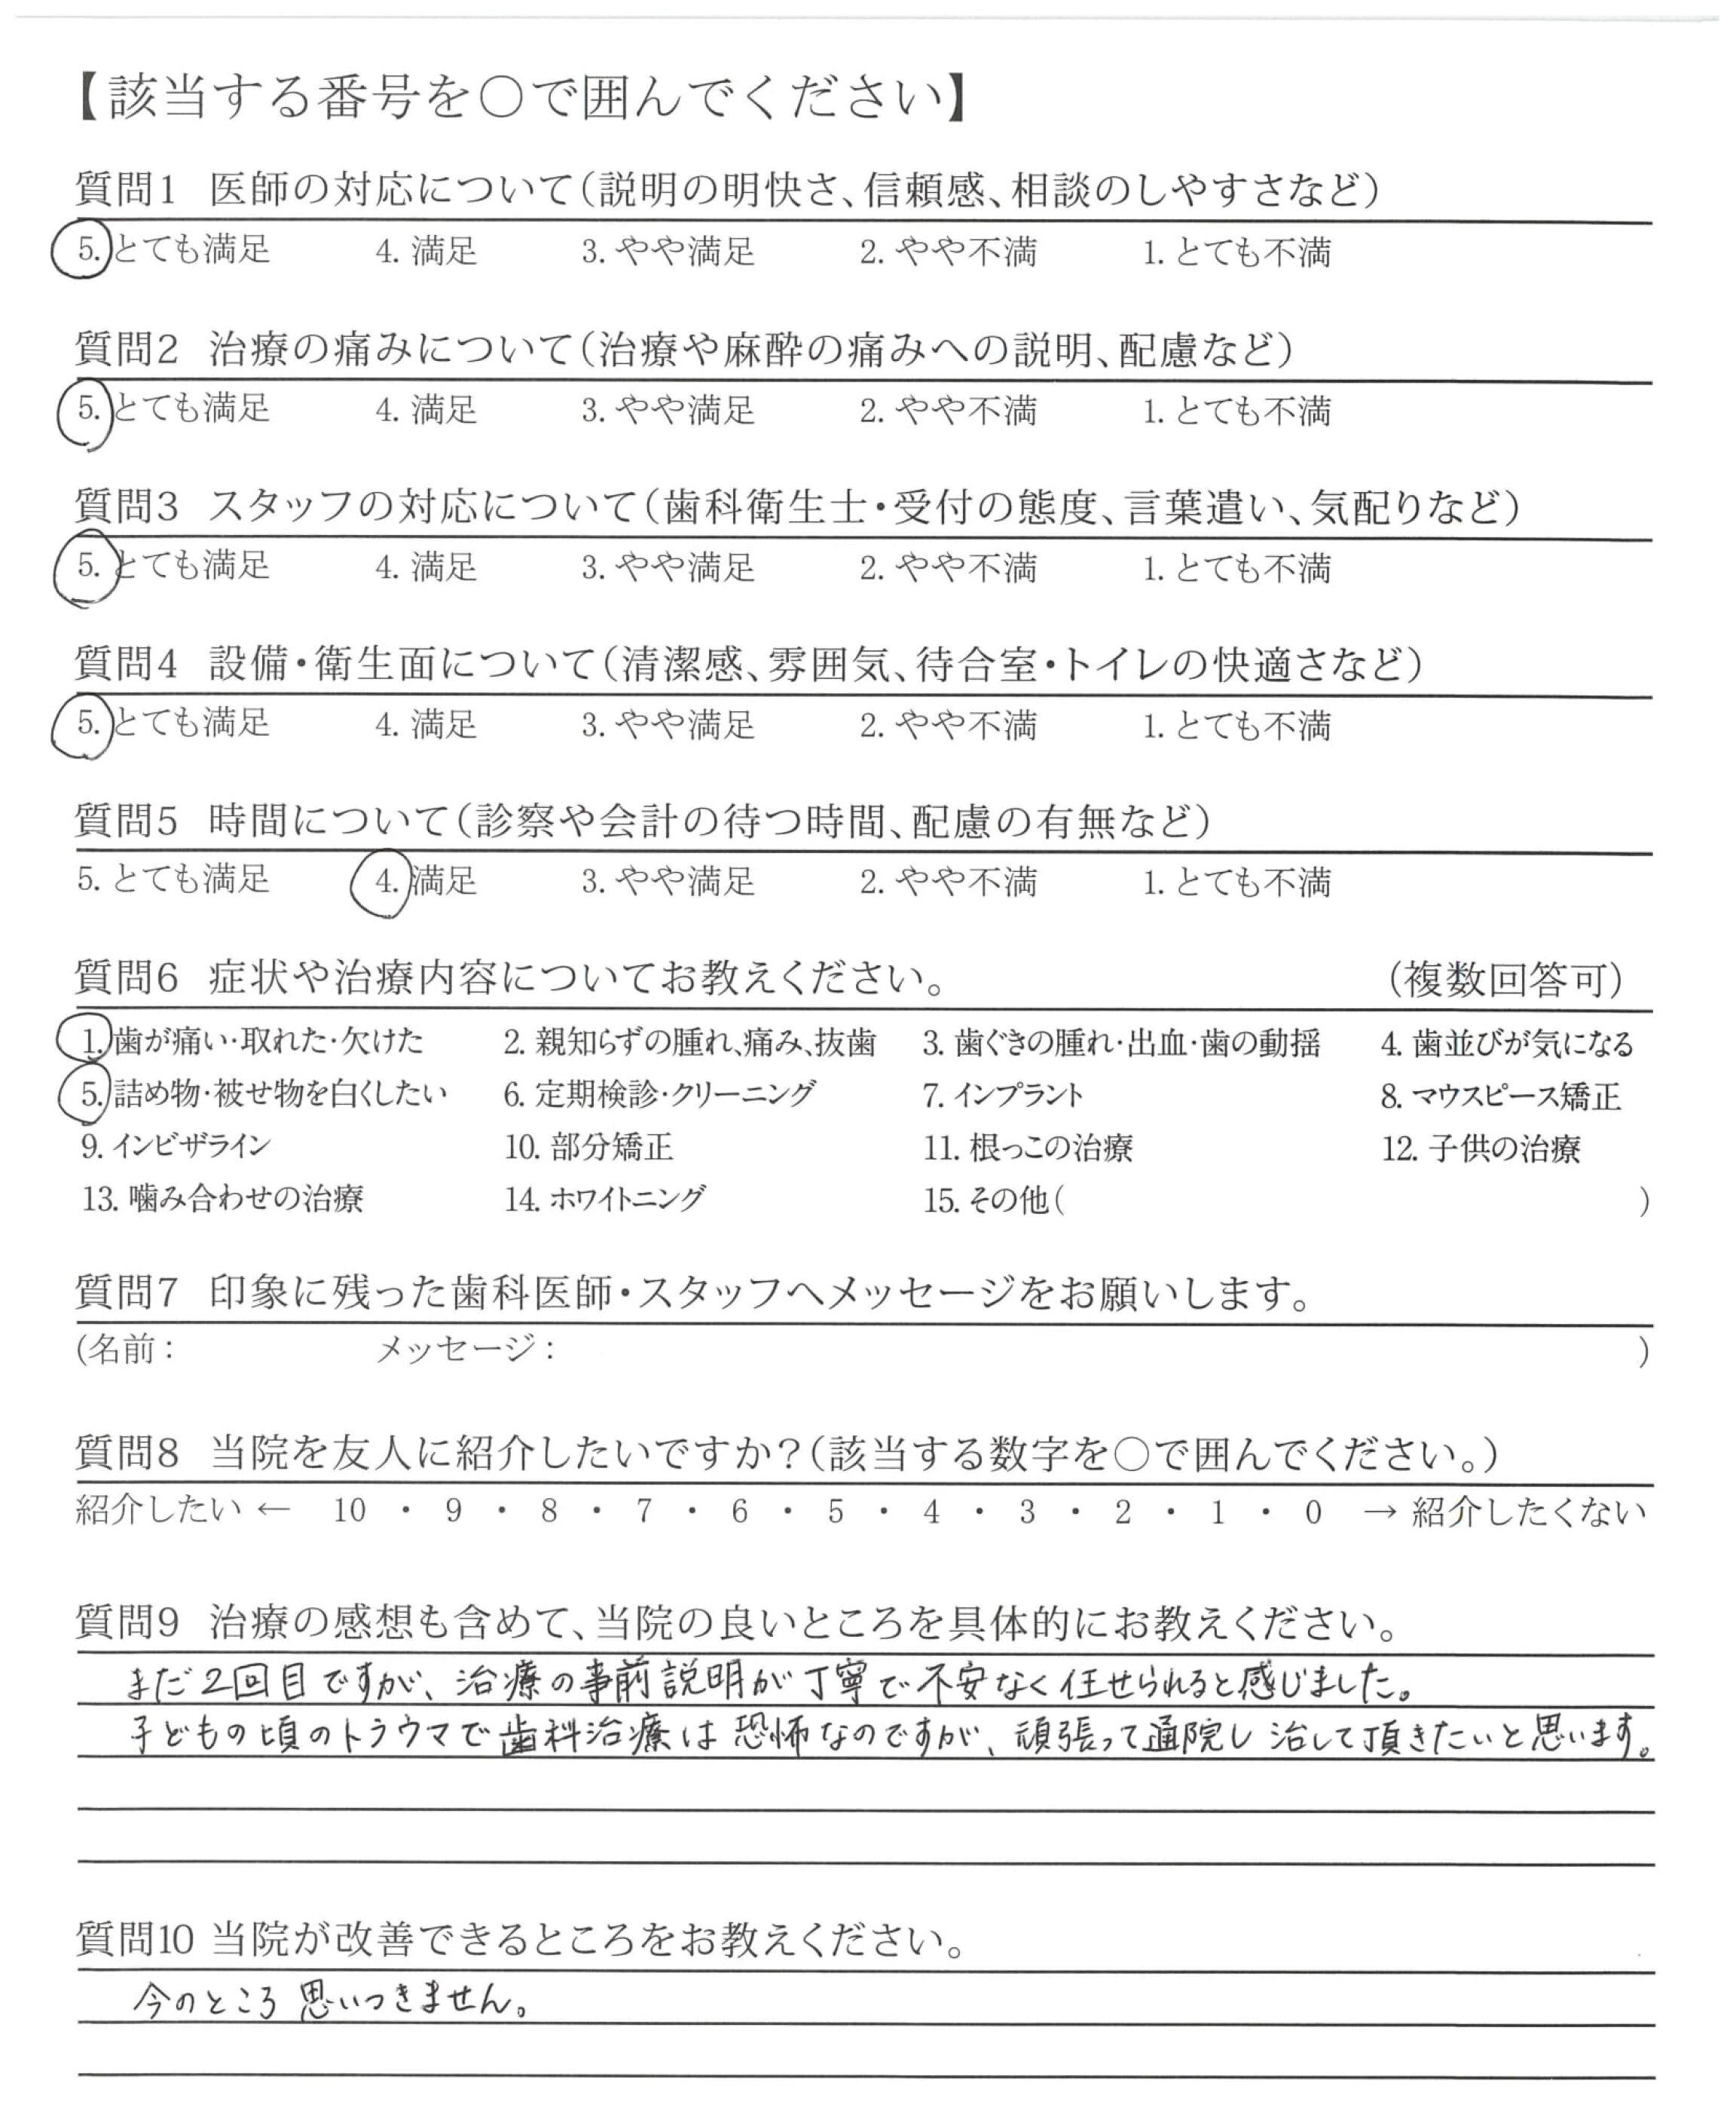 【該当する番号を○で囲んでください】
質問1 医師の対応について(説明の明快さ、信頼感、相談のしやすさなど)
5. とても満足 4. 満足 3. やや満足 2. やや不満 1. とても不満
質問2 治療の痛みについて(治療や麻酔の痛みへの説明、配慮など)
5. とても満足 4. 満足 3. やや満足 2. やや不満 1. とても不満
質問3 スタッフの対応について(歯科衛生士・受付の態度、言葉遣い、気配りなど)
5. とても満足 4. 満足 3. やや満足 2. やや不満 1. とても不満
質問4 設備・衛生面について(清潔感、雰囲気、待合室・トイレの快適さなど)
5. とても満足 4. 満足 3. やや満足 2. やや不満 1. とても不満
質問5 時間について(診察や会計の待つ時間、配慮の有無など)
5. とても満足 4. 満足 3. やや満足 2. やや不満 1. とても不満
質問6 症状や治療内容についてお教えください。 (複数回答可)
1. 歯が痛い・取れた・欠けた 2. 親知らずの腫れ、痛み、抜歯 3. 歯ぐきの腫れ・出血・歯の動揺 4. 歯並びが気になる
5. 詰め物・被せ物を白くしたい 6. 定期検診・クリーニング 7. インプラント 8. マウスピース矯正
9. インビザライン 10. 部分矯正 11. 根っこの治療 12. 子供の治療
13. 噛み合わせの治療 14. ホワイトニング 15. その他( )
質問7 印象に残った歯科医師・スタッフへメッセージをお願いします。
(名前: メッセージ: )
質問8 当院を友人に紹介したいですか?(該当する数字を○で囲んでください。)
紹介したい ← 10 ・ 9 ・ 8 ・ 7 ・ 6 ・ 5 ・ 4 ・ 3 ・ 2 ・ 1 ・ 0 → 紹介したくない
質問9 治療の感想も含めて、当院の良いところを具体的にお教えください。
まだ2回目ですが、治療の事前説明が丁寧で不安なく任せられると感じました。
子どもの頃のトラウマで歯科治療は恐怖なのですが、頑張って通院し治して頂きたいと思います。
質問10 当院が改善できるところをお教えください。
今のところ思いつきません。